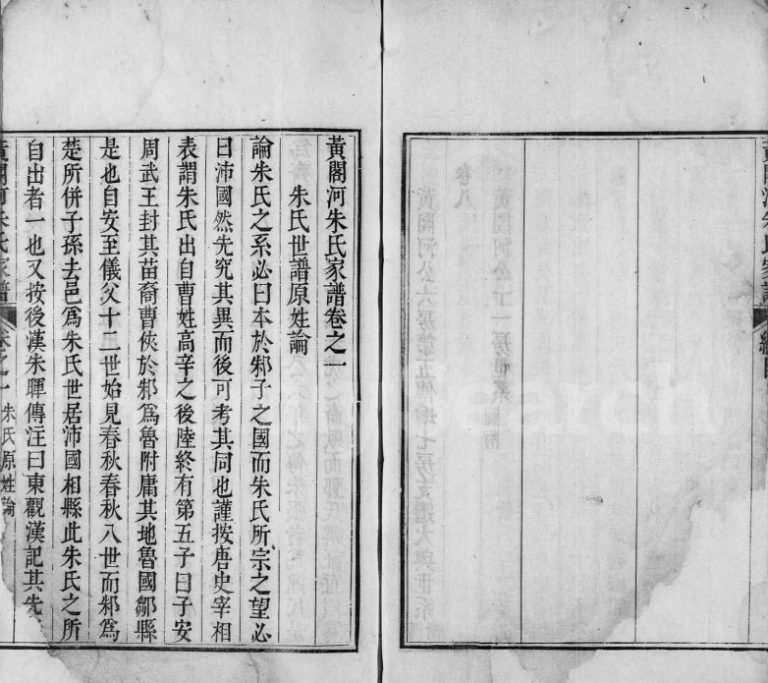 黃閣河朱氏家譜
黃閣河朱氏家譜卷之一
朱氏世譜原姓論
論朱氏之系必曰本於邾子之國而朱氏所宗之望必
曰沛國然先究其異而後可考其同也謹按唐史宰相
表謂朱氏出自曹姓高辛之後陸終有第五子曰子安
周武王封其苗裔曹俠於邾爲魯附庸其地魯國鄒縣
是也自安至儀父十二世始見春秋春秋八世而邾爲
楚所併子孫去邑爲朱氏世居沛國相縣此朱氏之所
自出者一也又按後漢朱暉傳注曰東觀漢記其先
黃閣河朱氏家譜 卷之一 朱氏原姓論